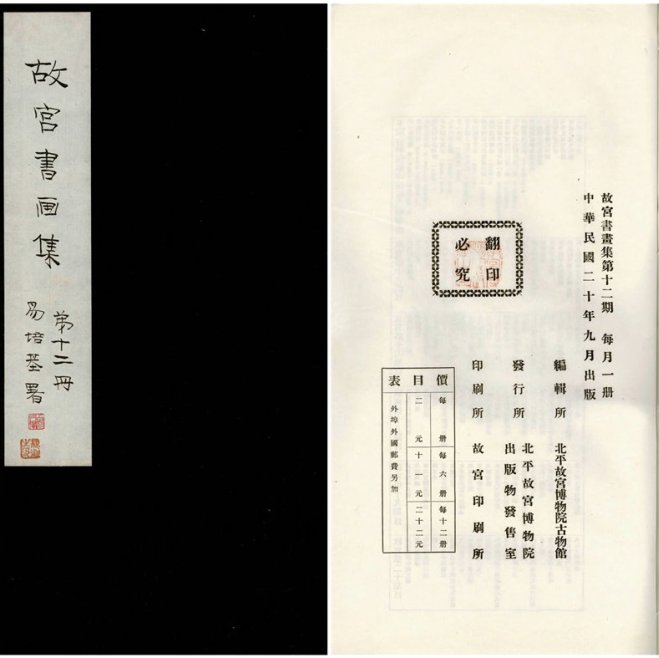 故宮書画集
第十二冊
易培基署
故宮書畫集第十二期 每月一册
中華民國二十年九月出版
翻印
必究
編輯所 北平故宮博物院古物館
發行所 北平故宮博物院
出版物發售室
印刷所 故宮印刷所
價目表
每册 每六册 每十二册
二元 十一元 二十二元
外埠外國郵費另加